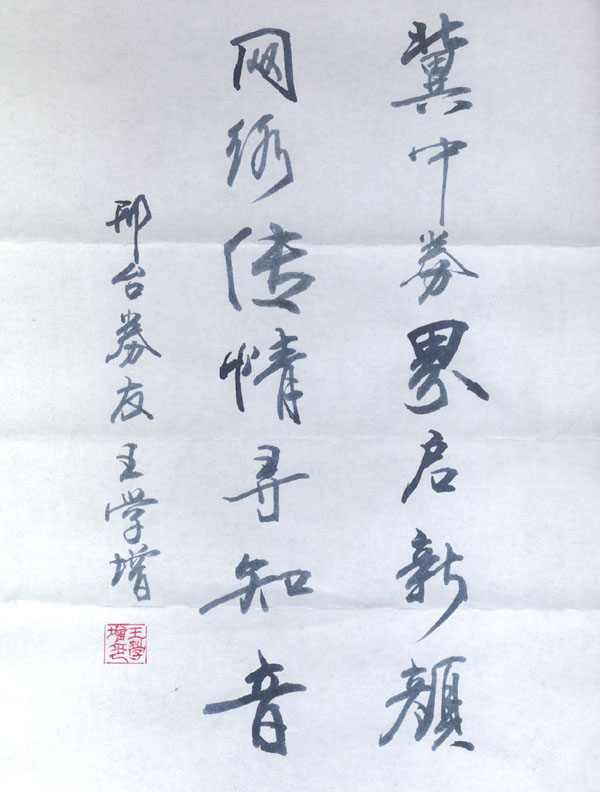 冀中券界启新颜
网络传情寻知音
邢台券友王学增